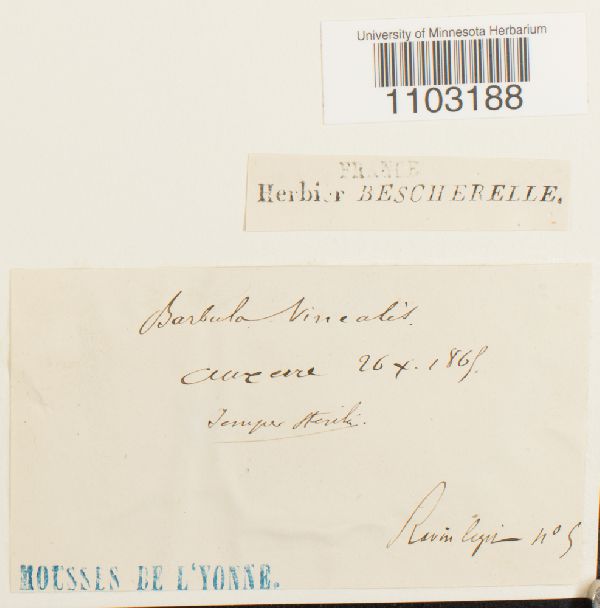 University of Minnesota Herbarium
1103188
FRANCE
Herbier BESCHERELLE.
Barbula Vinealis.
auxerre 26 x. 1865.
Semper sterilis.
Ravin legit nº 5
MOUSSES DE L'YONNE.